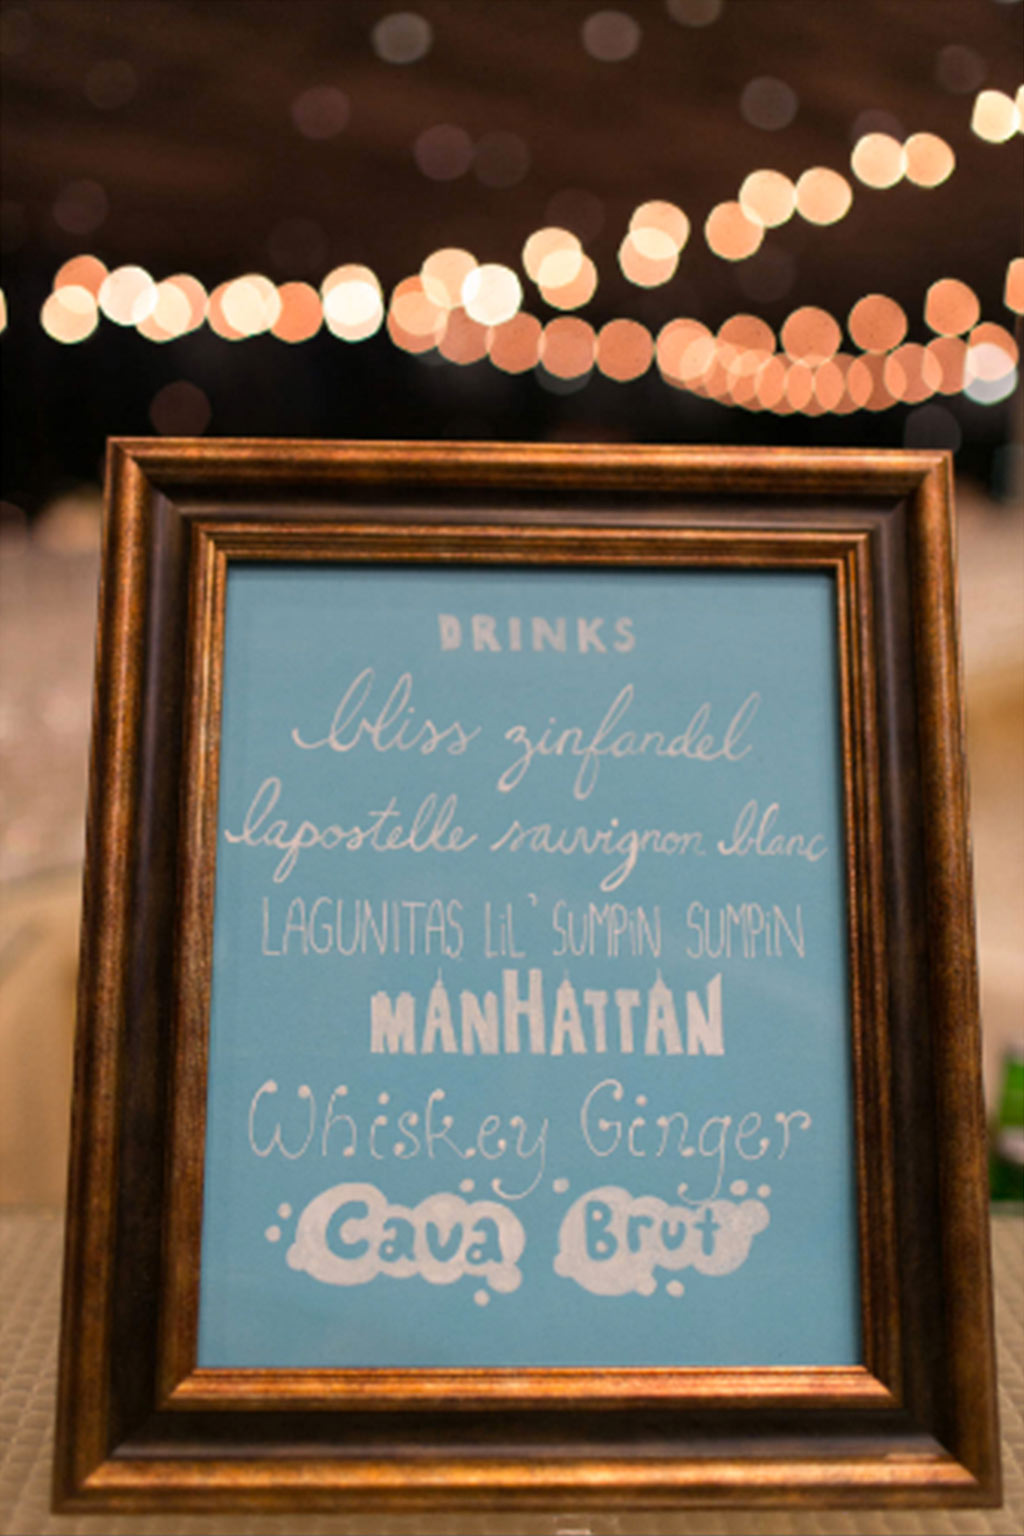 DRINKS
bliss zinfandel
lapostelle sauvignon blanc
LAGUNITAS LiL' SUMPiN SUMPiN
MANHATTAN
Whiskey Ginger
Cava Brut